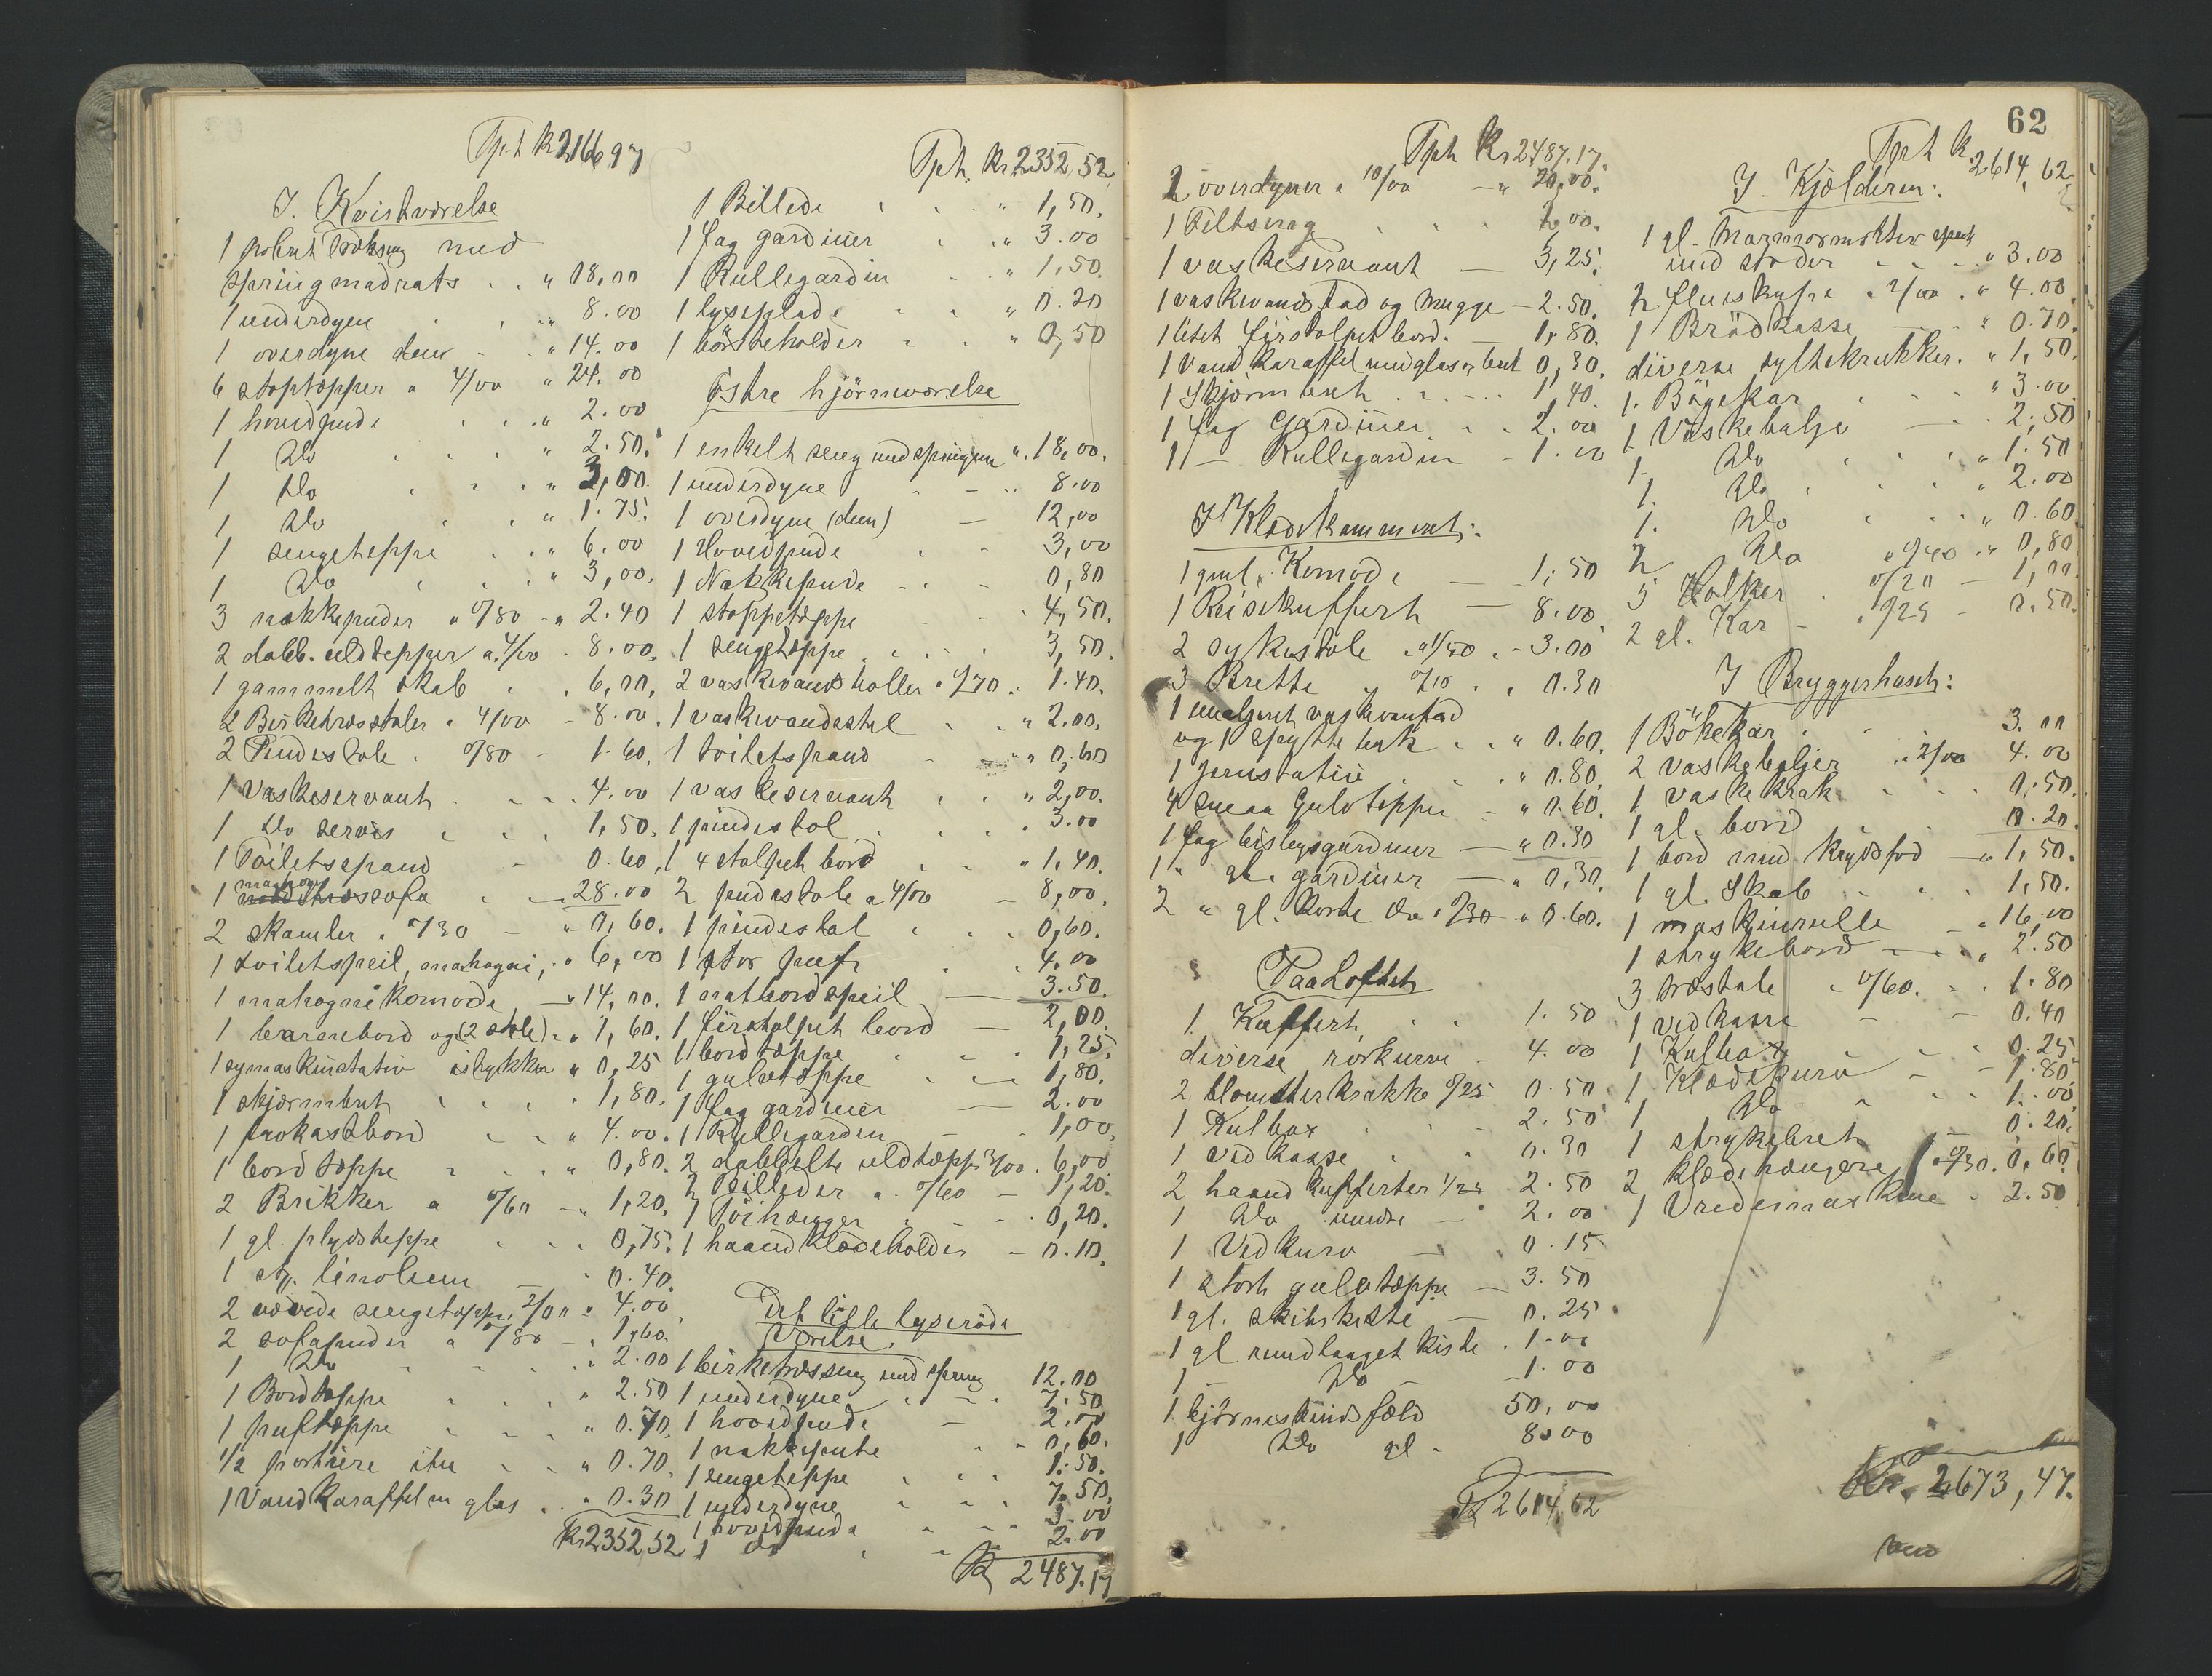 Tpt. Kr 2166 97
I. Kvistværelse
1 poleret træseng med
springmadrats . . " 18,00
1 underdyne . . " 8.00
1 overdyne dun . . " 14.00
6 stoptepper a 4/00 " 24.00
1 hovedpude . . " 2.00
1 Do . . " 2.50.
1 Do . . " 3,00.
1 Do . . " 1.75.
1 sengeteppe . . " 6.00
1 Do . . " 3,00.
3 nakkepuder a 0/80 - " 2.40
2 dobb. uldtepper a 4/00 - 8.00.
1 gammelt skab . . 6,00.
2 Birketræsstoler a 4/00 - 8.00.
2 Pindestole . 0/80 - 1.60.
1 Vaskeservant . . . 4.00
1 Do servis . . 1,50.
1 Toiletspand - 0.60.
1 mahogni sofa . . 28.00
2 skamler . 0/30 - " 0,60.
1 toiletspeil, mahogni, . " 6,00
1 mahogni komode — " 14,00.
1 barnebord og (2 stole) . " 1,60.
1 symaskinstativ istykker " 0,25
1 skjærmbret . . . " 1,80.
1 frokostbord . . " 4.00.
1 bordteppe . . " 0,80.
2 Brikker a 0/60 - " 1,20.
1 gl. plydsteppe . . . 0,75.
1 st. linolium — " 0.40.
2 vævede sengetepper. 2/00 " 4.00
2 sofapuder a 0/80 - . 1,60.
1 Do . . . " 2.00
1 Bordteppe . . . " 2.50
1 puftæppe . . . " 0.70.
1/2 portiere itu . . " 0.70.
1 Vandkaraffel m glas . . " 0.30
Kr 2352,52.
Tpt. Kr. 2352,52
1 Billede . . . " 1,50.
1 fag gardiner . . " 3.00
1 Rullegardin . . " 1,50.
1 lyseplade . . " 0.20
1 børsteholder . . " 0,50
Østre hjørneværelse
1 enkelt seng med springm ". 18,00.
1 underdyne — — .. 8.00
1 overdyne (dun) — 12,00
1 Hovedpude . - 3,00
1 Nakkepude - . - 0,80
1 stoppetæppe - - . 4,50.
1 sengeteppe . . . - 3,50.
2 vaskevandsboller a 0/70 . 1.40.
1 vaskevandsstel . . " 2.00.
1 toiletspand - " 0,60
1 vaskeservant . . " 2,00.
1 pindestol . . . . 3.00
1 4 stolpet bord . . " 1,40.
2 pindestole a 4/00 — 8,00.
1 pindestol . . . 0,60.
1 stor puf . . . 4.00
1 natbordspeil — 3.50.
1 firstolpet bord — 2,00.
1 bordteppe . . . 1,25.
1 gulvteppe . - — 1,80.
1 fag gardiner — 2.00
1 Rullegardin — 1,00.
2 dobbelte uldtepper 3/00 . 6,00
2 Billeder a 0/60 — 1,20.
1 Tøihænger . - . 0,20.
1 haandklædeholder - 0.10.
Det lille lyserøde
Værelse.
1 birketræsseng med spring 12.00
1 underdyne . - . 7.50
1 hovedpude — 2.00
1 nakkepute . . 0,60.
1 sengeteppe . . . 1.50.
1 underdyne . . - 7.50.
1 hovedpude . . . 3.00
1 do . - - 2.00
Kr 2487.17
62
Tpt Kr 2487.17.
2 overdyner a 10/00 — " 20.00.
1 Filtsvag . . . 2,00.
1 vaskeservant — 3,25.
1 vaskevandsfad og mugge — 2.50.
1 litet firstolpet bord. — 1,80.
1 Vandkaraffel med glas og bret 0,30.
1 Skjærmbret . . - . . 1,40.
1 fag Gardiner . . . 2.00
1 — Rullegardin - 1.00
I Klædekammeret:
1 gml. Komode — 1,50
1 Reisekuffert — 8.00
2 sykestole . a 1/50 . - 3.00
3 Brette " 0/10 . . 0.30
1 emaljeret vaskevansfad
og 1 spyttebak . . " 0.60.
1 Jernstativ . . . " 0.80.
4 smaa Gulvtepper — " 0.60.
1 fag bislagsgardiner — " 0.30
1 " gl. gardiner — " 0,30.
2 " gl. korte do a 0/30 - " 0.60.
Paa Loftet
1 Kuffert . . 1.50
diverse rørkurve - 4.00
2 blomsterkrakke 0/25 0.50
1 Kulbox . . - 2.50
1 Vedkasse . . 0.30
2 haandkufferter 1/25 2.50
1 Do mindre — 2.00
1 Vedkurv — . 0.15
1 stort gulvtæppe — 3.50
1 gl. skibskiste — 0.25
1 gl rundlaaget kiste . 1.00
1 Do — 1.00
1 bjørneskindsfæld 50.00
1 Do gl - 8.00
Kr 2614,62
Tpt K. 2614,62
I Kjælderen:
1 gl. Marmormorter spruk
med støder . . . " 3.00
2 flueskape a 2/00 . " 4.00.
1 Brødkasse — — " 0.70.
diverse syltekrukker. " 1,50.
1. Bøgekar . . . " 3.00.
1 Vaskebalje — . . 2,50
1. Do . . . . " 1.50
1. Do . . . . " 2.00
1. Do . . . " 0.60
2 Do a 0/40 . " 0,80
5 Holker . 0/20 — 1,00.
2 gl. Kar - . 0/25 - 0.50.
I Bryggerhuset:
1 Bökekar . . . 3.00
2 vaskebaljer . . 2/00 4.00
1 vaskekrak . . . 0,50.
1 gl. bord . . . 0.20.
1 bord med krydsfod — " 1,50.
1 gl. Skab . . . 1,50.
1 maskinrulle — " 16,00
1 strykebord — . . " 2.50
3 træstole . 0/60. - . 1.80
1 Vedkasse — — 0.40
1 Kulbox . . . 0.25
1 Klædekurv — — 1.80
1 Do . . . 1.00
1 strykebret — 0.20.
2 klædehængere a 0/30. 0,60
1 Vredemaskine . 2.50
Kr. 2673,47.